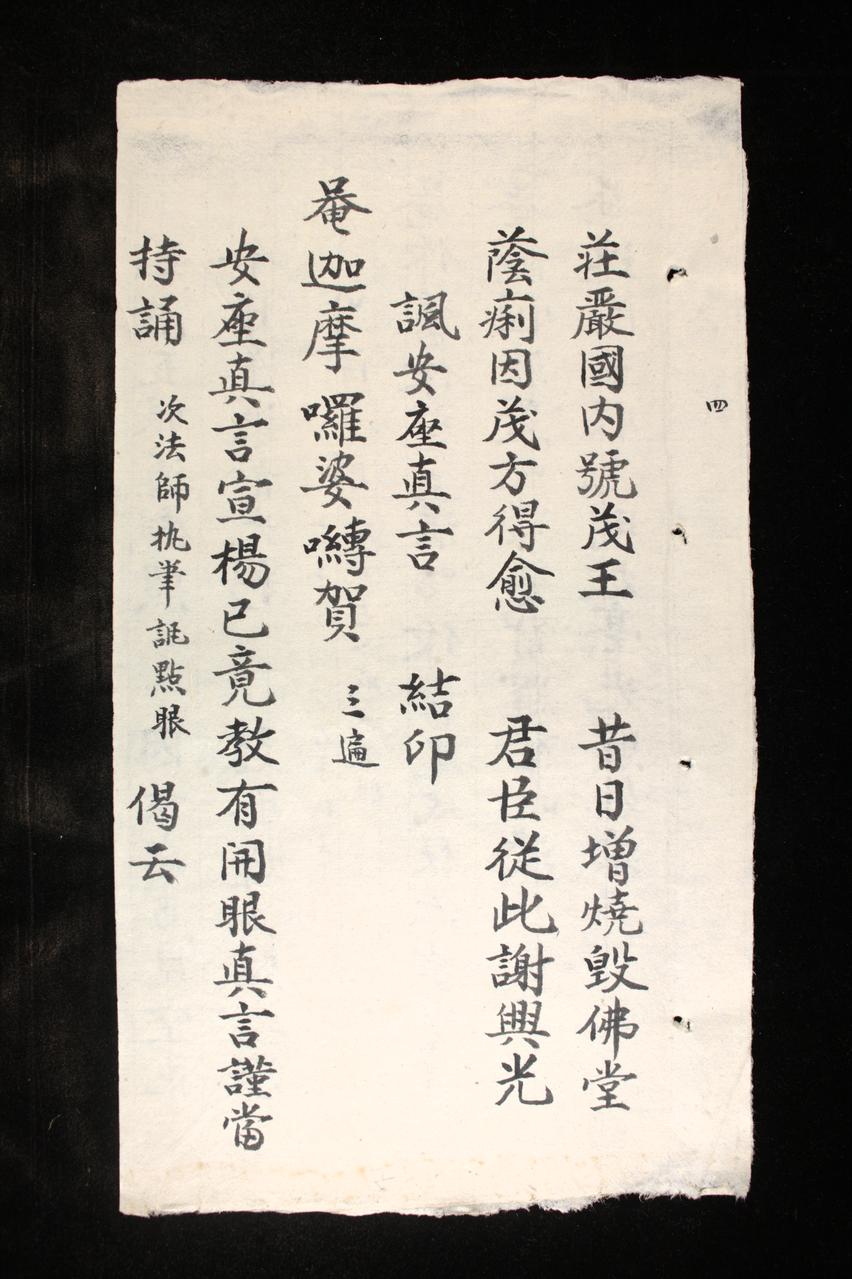 四
莊嚴國内號茂王 昔日增燒毀佛堂
蔭痢因茂方得愈 君臣從此謝興光
諷安座真言 結印
唵迦摩囉婆囀賀 三遍
安座真言宣楊已竟教有開眼真言謹當
持誦 次法師执筆 點眼 偈云